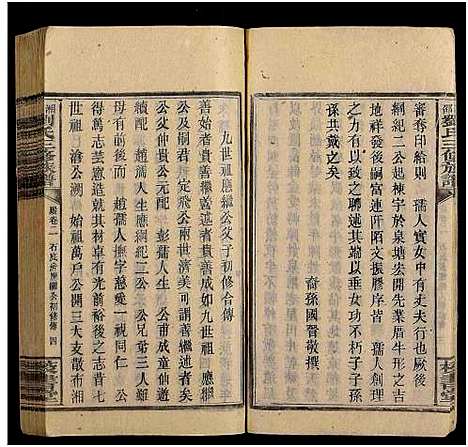 邵劉氏三修族譜
審奪印給則 孺人實女中有丈夫行也厥後
綱紀二公起棟宇於泉塘宏開先業眉牛形之吉
地祥發後嗣富連阡陌文振膠庠皆 孺人創理
之力有以致之聊述其端以垂女功不朽子子孫
孫共戴之矣
裔孫國賢敬撰
九世祖應繼公父子初修合傳
善始者貴善繼善繼者貴善成如九世祖 應繼
公及嗣君 天定飛公兩世濟美可謂善繼善成
者矣謹按 繼公元配 彭孺人 公成童仙遊
續配 趙孺人生應綱紀二公 公兄弟三人難
母有前後而 趙孺人撫字慈愛一視同仁 公
等又克善體親意造就其材卓有光前裕後之志昔七
世祖 滄公溯 始祖萬戶公開三大支散布湘
湘劉氏三修族譜
卷二
四